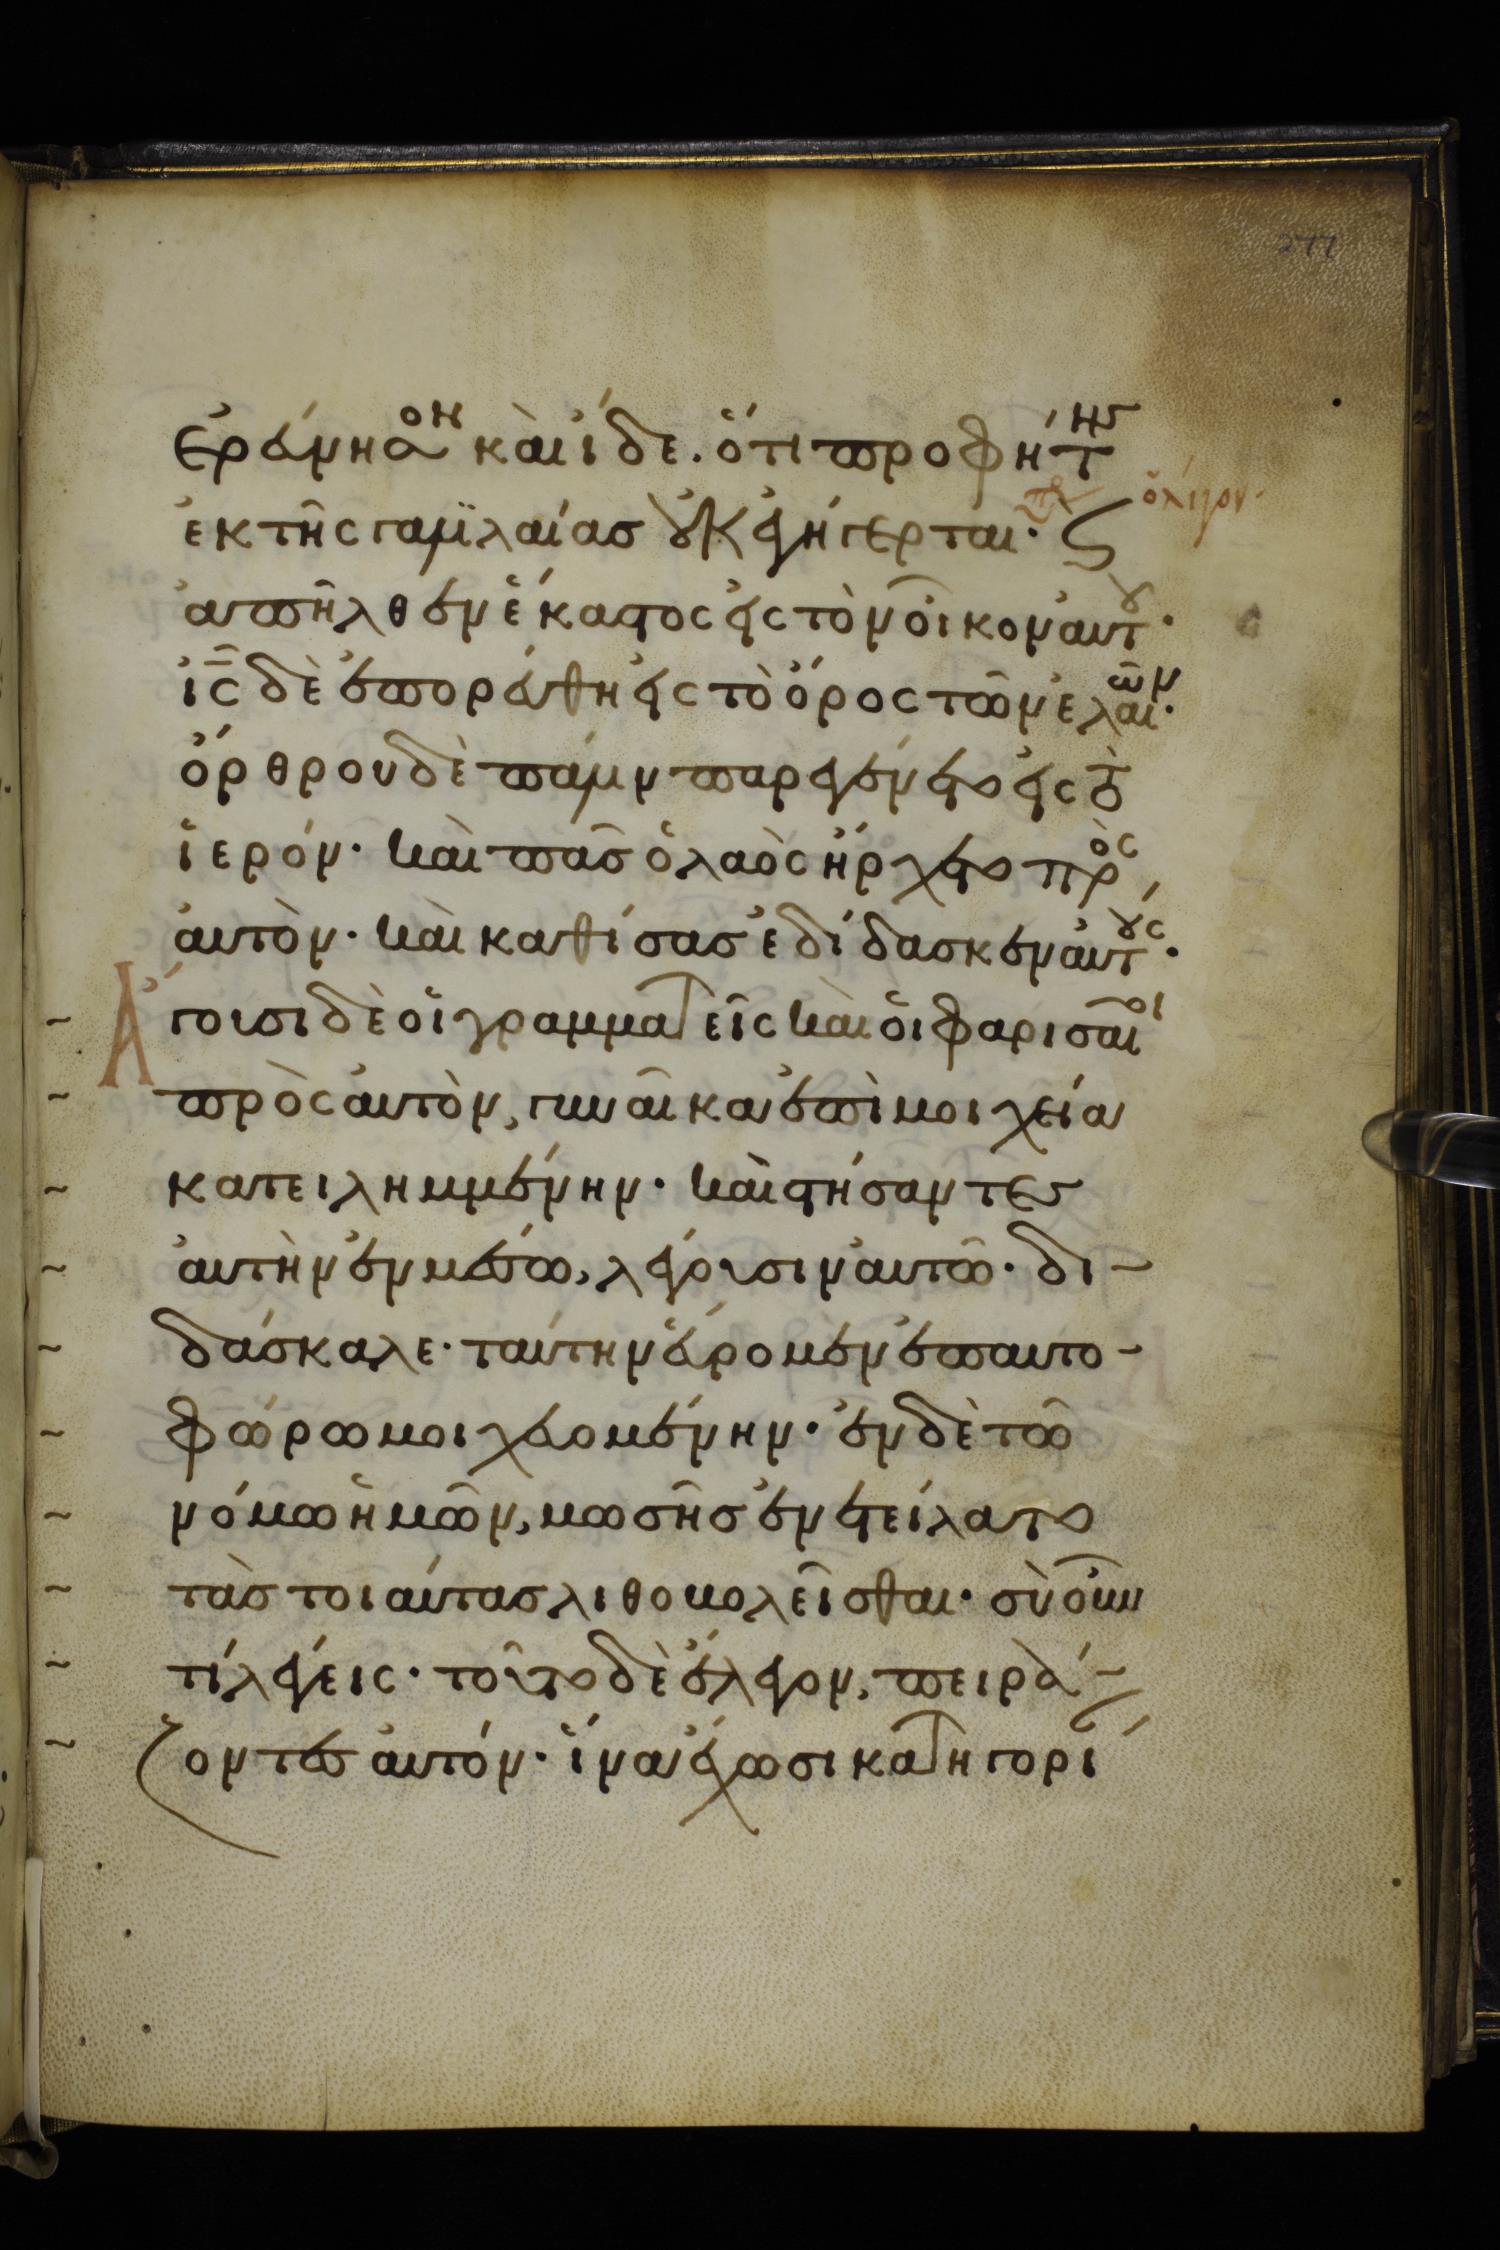 277
ἐρεύνησον καὶ ἴδε. ὅτι προφήτης
ἐκ τῆς γαλιλαίας οὐκ ἐγήγερται· ὀλίγον·
ἀπῆλθεν ἕκαστος εἰς τὸν οἶκον αὐτοῦ·
ἰ̅ς̅ δὲ ἐπορεύθη εἰς τὸ ὄρος τῶν ἐλαιῶν·
ὄρθρου δὲ πάλιν παρεγένετο εἰς τὸ
ἱερόν· καὶ πᾶς ὁ λαὸς ἤρχετο πρὸς
αὐτὸν· καὶ καθίσας ἐδίδασκεν αὐτούς·
Ἄγουσι δὲ οἱ γραμματεῖς καὶ οἱ φαρισαῖοι
πρὸς αὐτὸν, γυναῖκα ἐπὶ μοιχεία
κατειλημμένην· καὶ στήσαντες
αὐτὴν ἐν μέσω, λέγουσιν αὐτῶ· δι-
δάσκαλε· ταύτην εὕρομεν ἐπαυτο-
φώρω μοιχευομένην· ἐν δὲ τῶ
νόμω ἡμῶν, μωσῆς ἐνετείλατο
τὰς τοιαύτας λιθοβολεῖσθαι· σὺ οὖν
τί λέγεις· τοῦτο δὲ ἔλεγον, πειρά-
ζοντες αὐτόν· ἵνα ἔχωσι κατηγορί